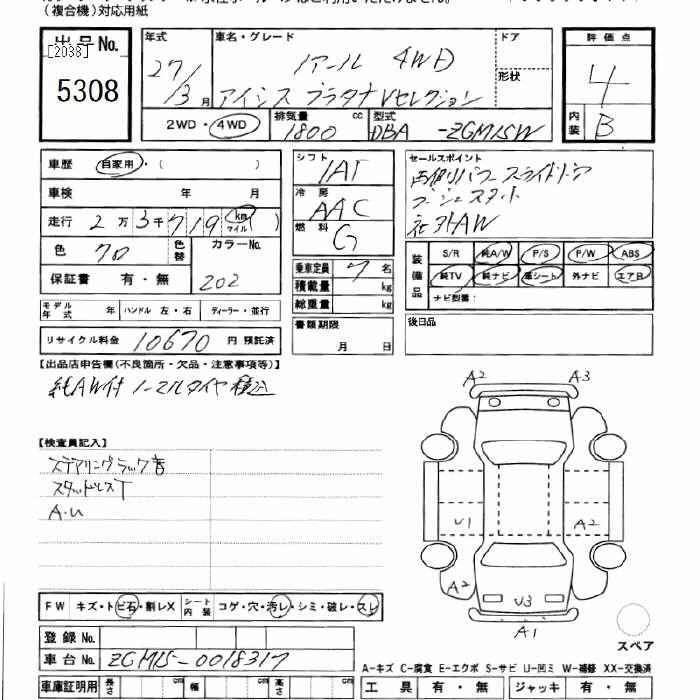 (複合機)対応用紙
出品No.
[2038]
5308
年式
27/3月
車名・グレード
ノアール 4WD
アイシス プラタナVセレクション
ドア
形状
評価点
4
内装
B
2WD・4WD
排気量 1800 cc
型式 DBA-ZGM15W
車歴 自家用・( )
車検 年 月
走行 2万3千719 km マイル ( )
色 クロ
色替
カラーNo. 202
保証書 有・無
シフト IAT
冷房 AAC
燃料 G
乗車定員 7名
積載量 kg
総重量 kg
書類期限
月 日
セールスポイント
両側パワースライドドア
プッシュスタート
社外AW
装備品
S/R 純A/W P/S P/W ABS
純TV 純ナビ 革シート 外ナビ エアB
ナビ型番:
後日品
モデル年式 年
ハンドル 左・右
ディーラー・並行
リサイクル料金 10670 円 預託済
【出品店申告欄(不良箇所・欠品・注意事項等)】
純AW付 ノーマルタイヤ積込
【検査員記入】
ステアリングラック音
スタッドレスT
A・U
A2 A3
U1 A2
A2 U3
A1
スペア
FW キズ・トビ石・割レX
シート内装 コゲ・穴・汚レ・シミ・破レ・スレ
登録No.
車台No. ZGM15-0018317
車庫証明用 長さ cm 幅 cm 高さ cm
A-キズ C-腐食 E-エクボ S-サビ U-凹ミ W-補修 XX-交換済
工具 有・無 ジャッキ 有・無